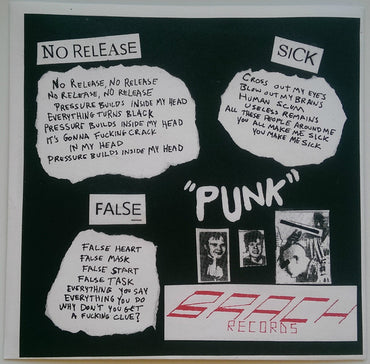 NO RELEASE
NO RELEASE, NO RELEASE
NO RELEASE, NO RELEASE
PRESSURE BUILDS INSIDE MY HEAD
EVERYTHING TURNS BLACK
PRESSURE BUILDS INSIDE MY HEAD
IT'S GONNA FUCKING CRACK
IN MY HEAD
PRESSURE BUILDS INSIDE MY HEAD
SICK
CROSS OUT MY EYES
BLOW OUT MY BRAINS
HUMAN SCUM
USELESS REMAINS
ALL THESE PEOPLE AROUND ME
YOU ALL MAKE ME SICK
YOU MAKE ME SICK
FALSE
FALSE HEART
FALSE MASK
FALSE START
FALSE TASK
EVERYTHING YOU SAY
EVERYTHING YOU DO
WHY DON'T YOU GET
A FUCKING CLUE?
"PUNK"
BEACH
RECORDS